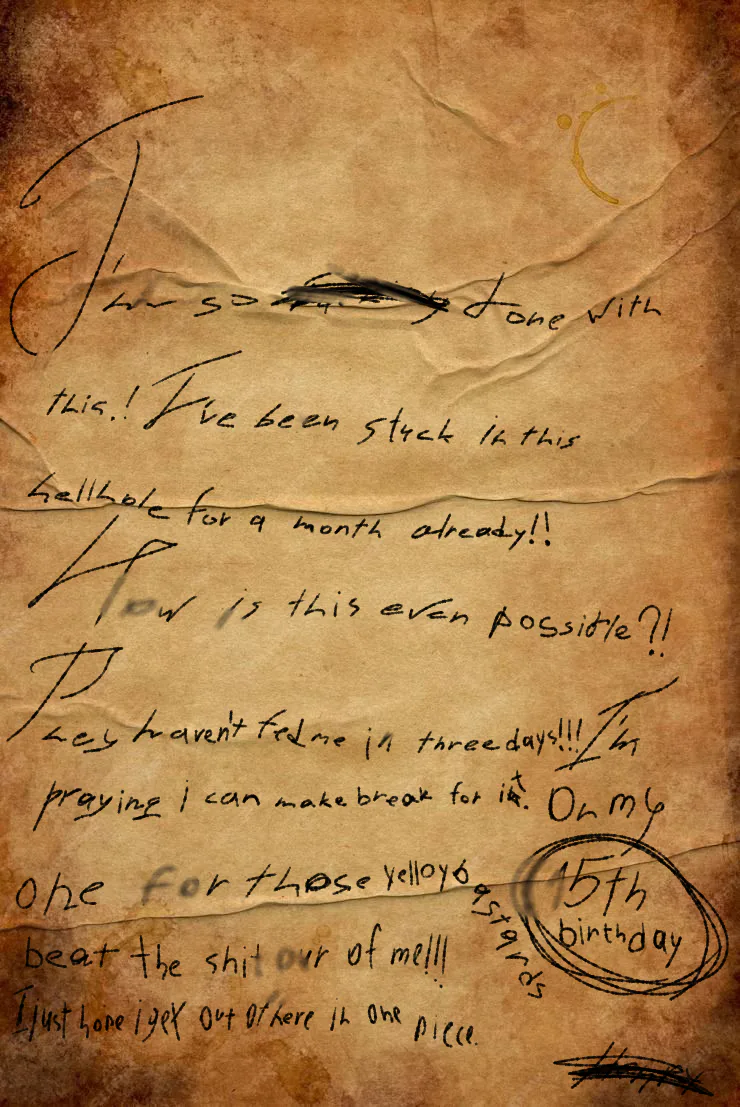 I'm so done with
this.! I've been stuck in this
hellhole for a month already!!
How is this even possible?!
They haven't fed me in three days!!! I'm
praying i can make break for it. On my
15th
birthday
one for those yelloy bastards
beat the shit our of me!!!
I just hope i get out of here in one piece.
Henry